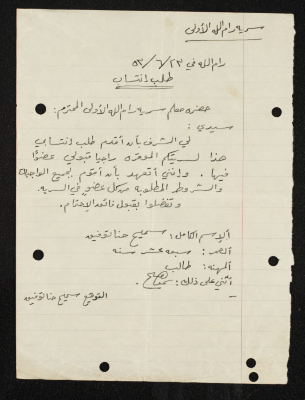 سرية رام الله الأولى
رام الله في ٢٣/٦/٥٣
طلب انتساب
حضرة معلم سرية رام الله الأولى المحترم:
سيدي:
لي الشرف بأن أقدم طلب انتسابي
هذا لسريتكم الموقره راجيا قبولي عضوًا
فيها. وإنني أتعهد بأن أقوم بجميع الواجبات
والشروط المطلوبه من كل عضو في السريه.
وتفضلوا بقبول فائق الإحترام.
الإسم الكامل: سميح حنا توفيق
العمر: سبعة عشر سنه
المهنه: طالب
التوقيع سميح حنا توفيق